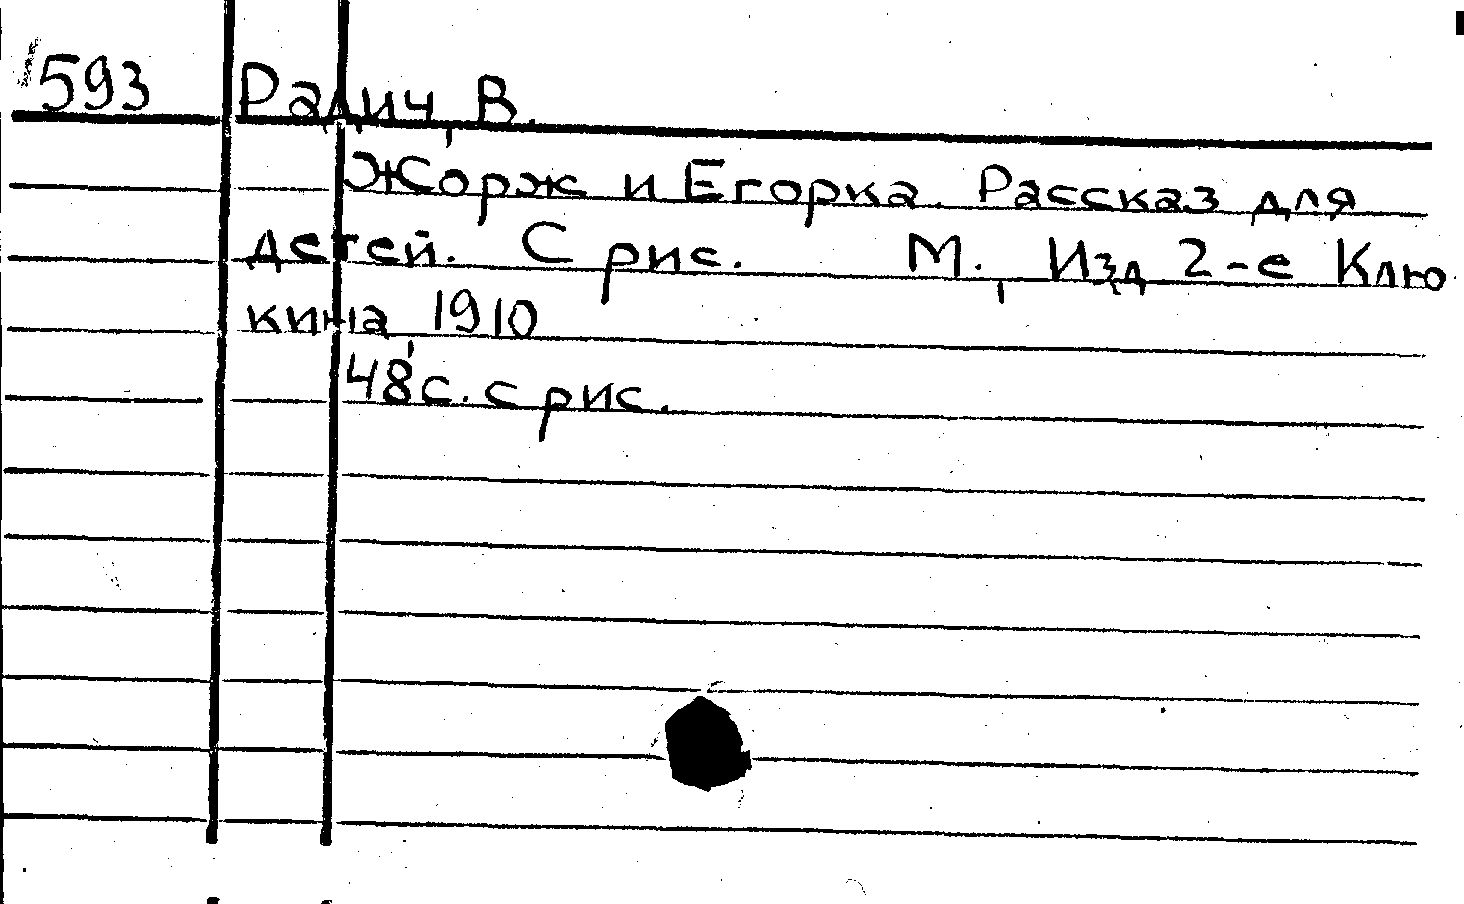 593 Радич, В.
Жорж и Егорка. Рассказ для
детей. С рис. М., Изд 2-е Клю
кина, 1910
48 с. с рис.